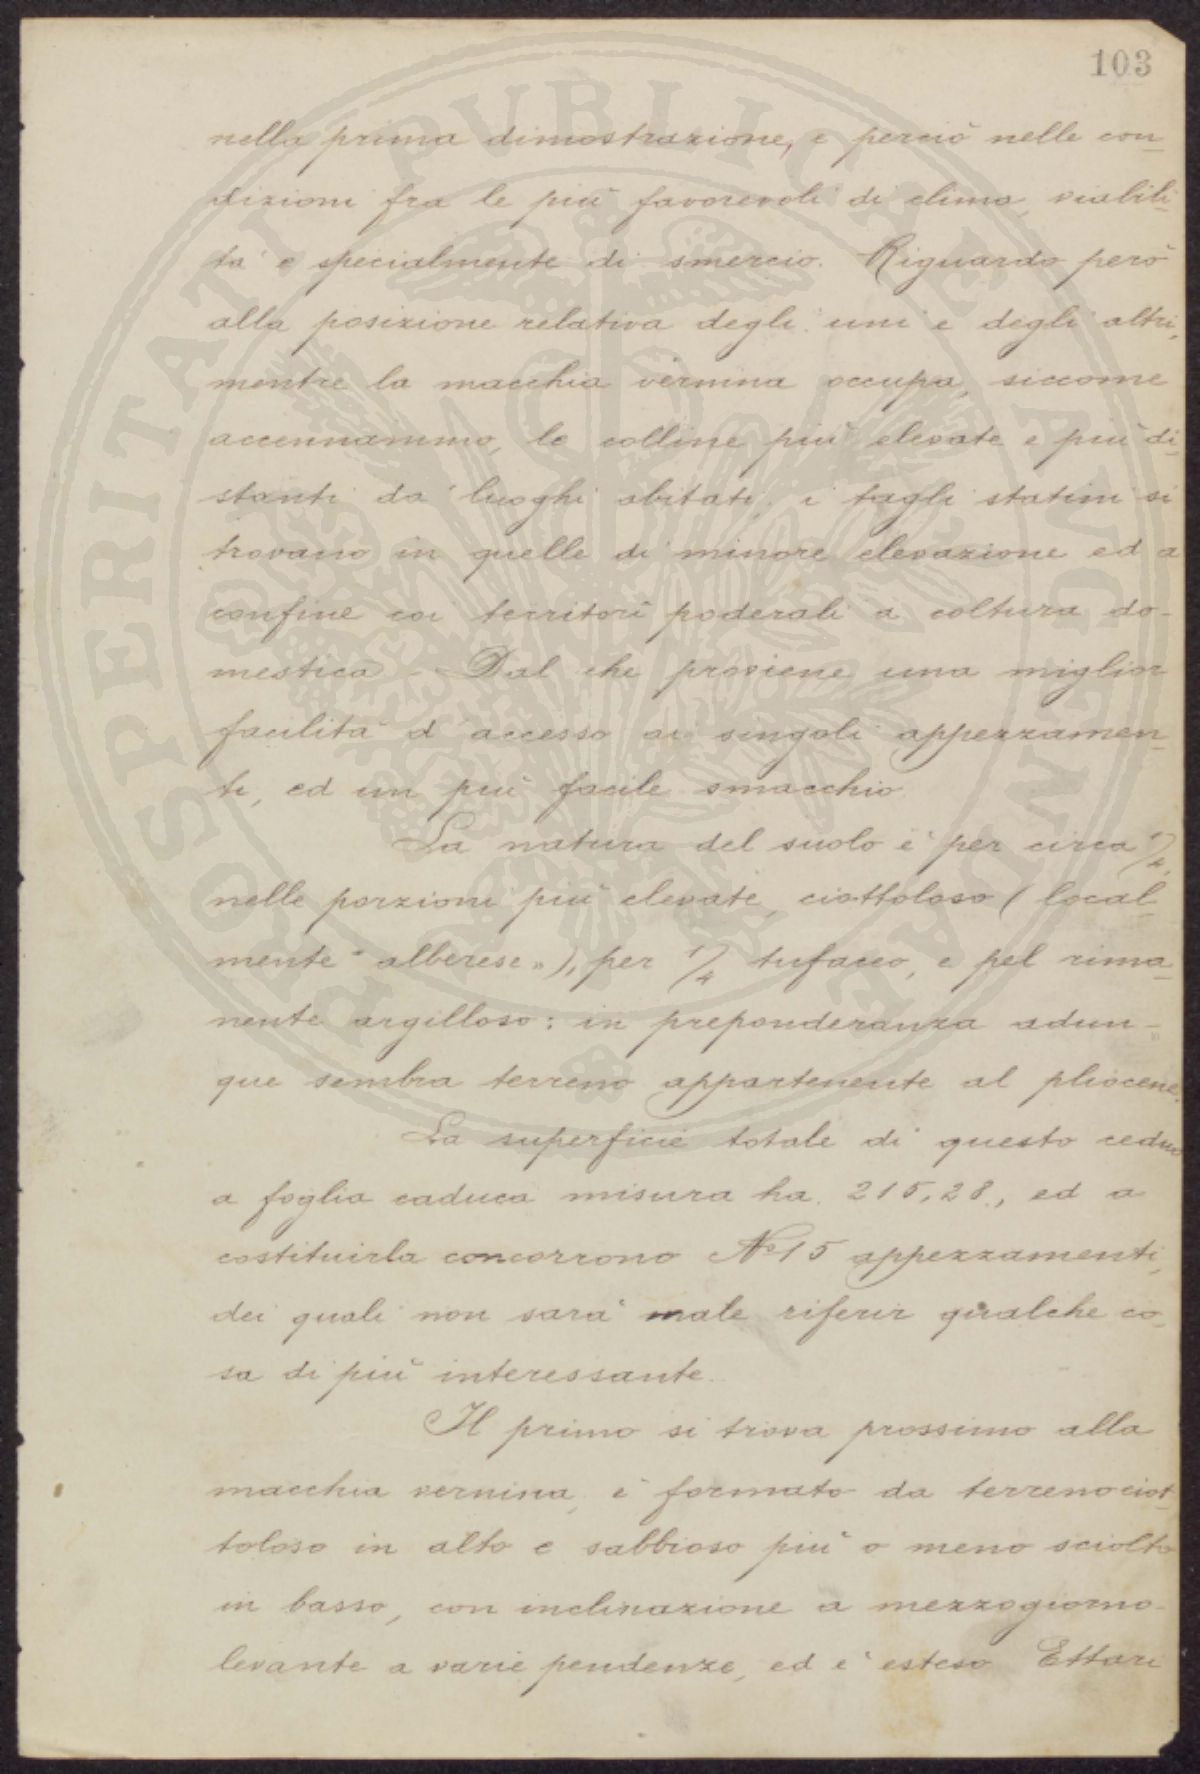 103
nella prima dimostrazione, e perciò nelle con-
dizioni fra le più favorevoli di clima, viabili-
tà e specialmente di smercio. Riguardo però
alla posizione relativa degli uni e degli altri,
mentre la macchia vernina occupa, siccome
accennammo, le colline più elevate e più di-
stanti da' luoghi abitati, i tagli statini si
trovano in quelle di minore elevazione ed a
confine coi territori poderali a coltura do-
mestica - Dal che proviene una miglior
facilità d'accesso ai singoli appezzamen-
ti, ed un più facile smacchio.
La natura del suolo è per circa 1/4,
nelle porzioni più elevate, ciottoloso (local-
mente "alberese"), per 1/4 tufaceo, e pel rima-
nente argilloso: in preponderanza adun-
que sembra terreno appartenente al pliocene.
La superficie totale di questo ceduo
a foglia caduca misura ha. 215,28., ed a
costituirla concorrono Nº 15 appezzamenti,
dei quali non sarà male riferir qualche co-
sa di più interessante.
Il primo si trova prossimo alla
macchia vernina, è formato da terreno ciot-
toloso in alto e sabbioso più o meno sciolto
in basso, con inclinazione a mezzogiorno-
levante a varie pendenze, ed è esteso Ettari
PROSPERITATI PVBLICAE AVGENDAE